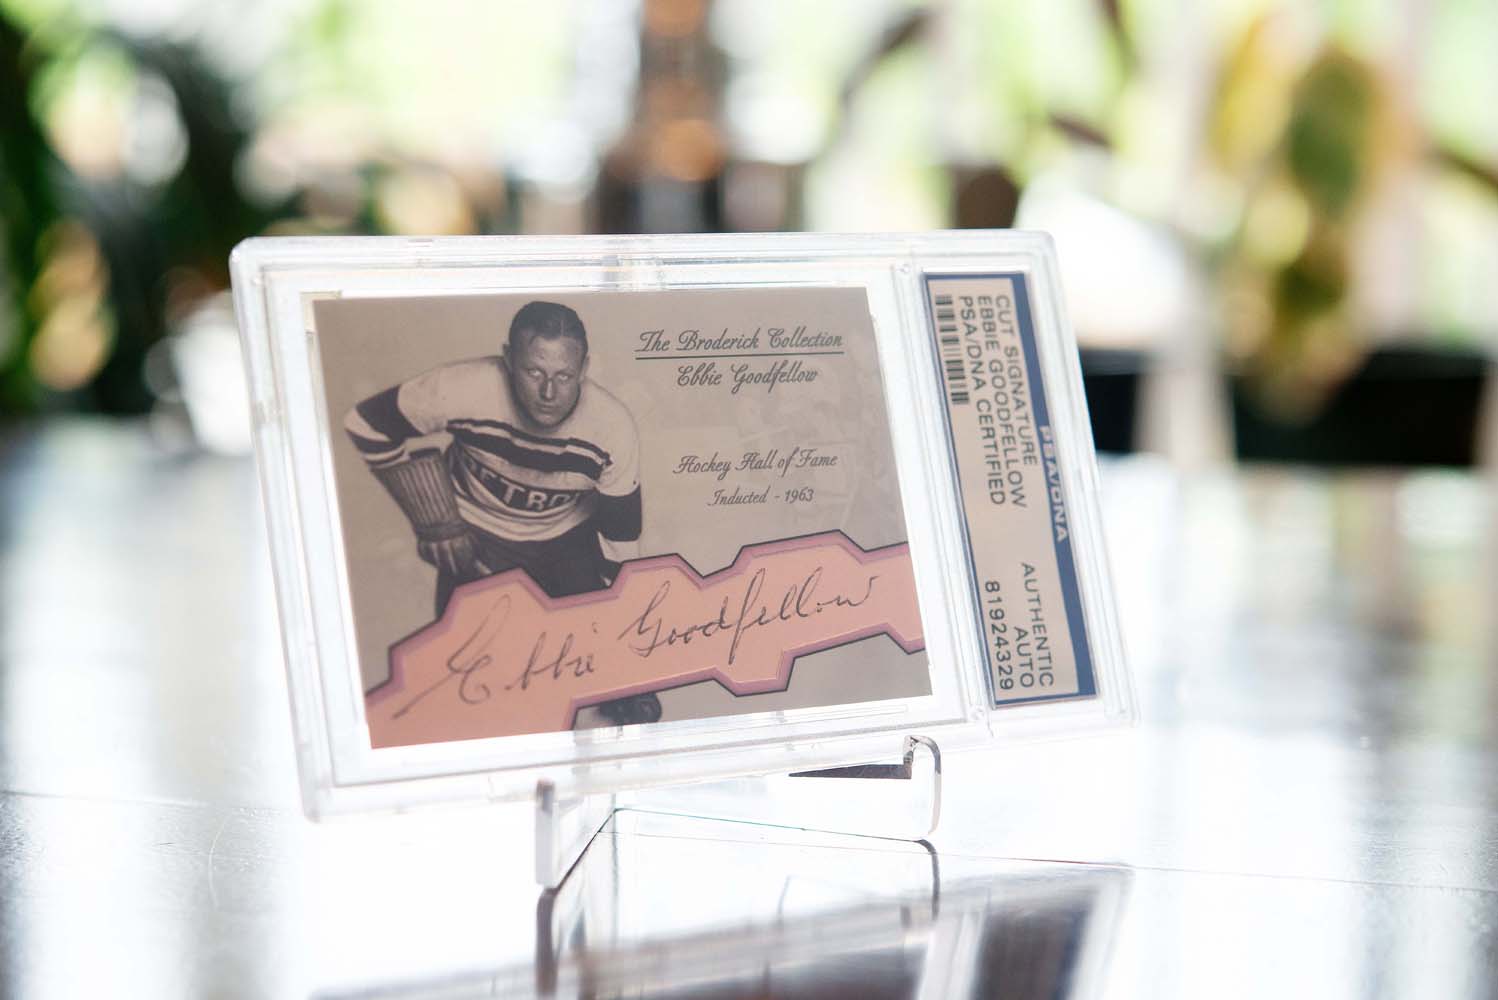 The Broderick Collection
Ebbie Goodfellow
Hockey Hall of Fame
Inducted - 1963
DETRO
Ebbie Goodfellow
PSA/DNA
CUT SIGNATURE
EBBIE GOODFELLOW
PSA/DNA CERTIFIED
AUTHENTIC
AUTO
81924329